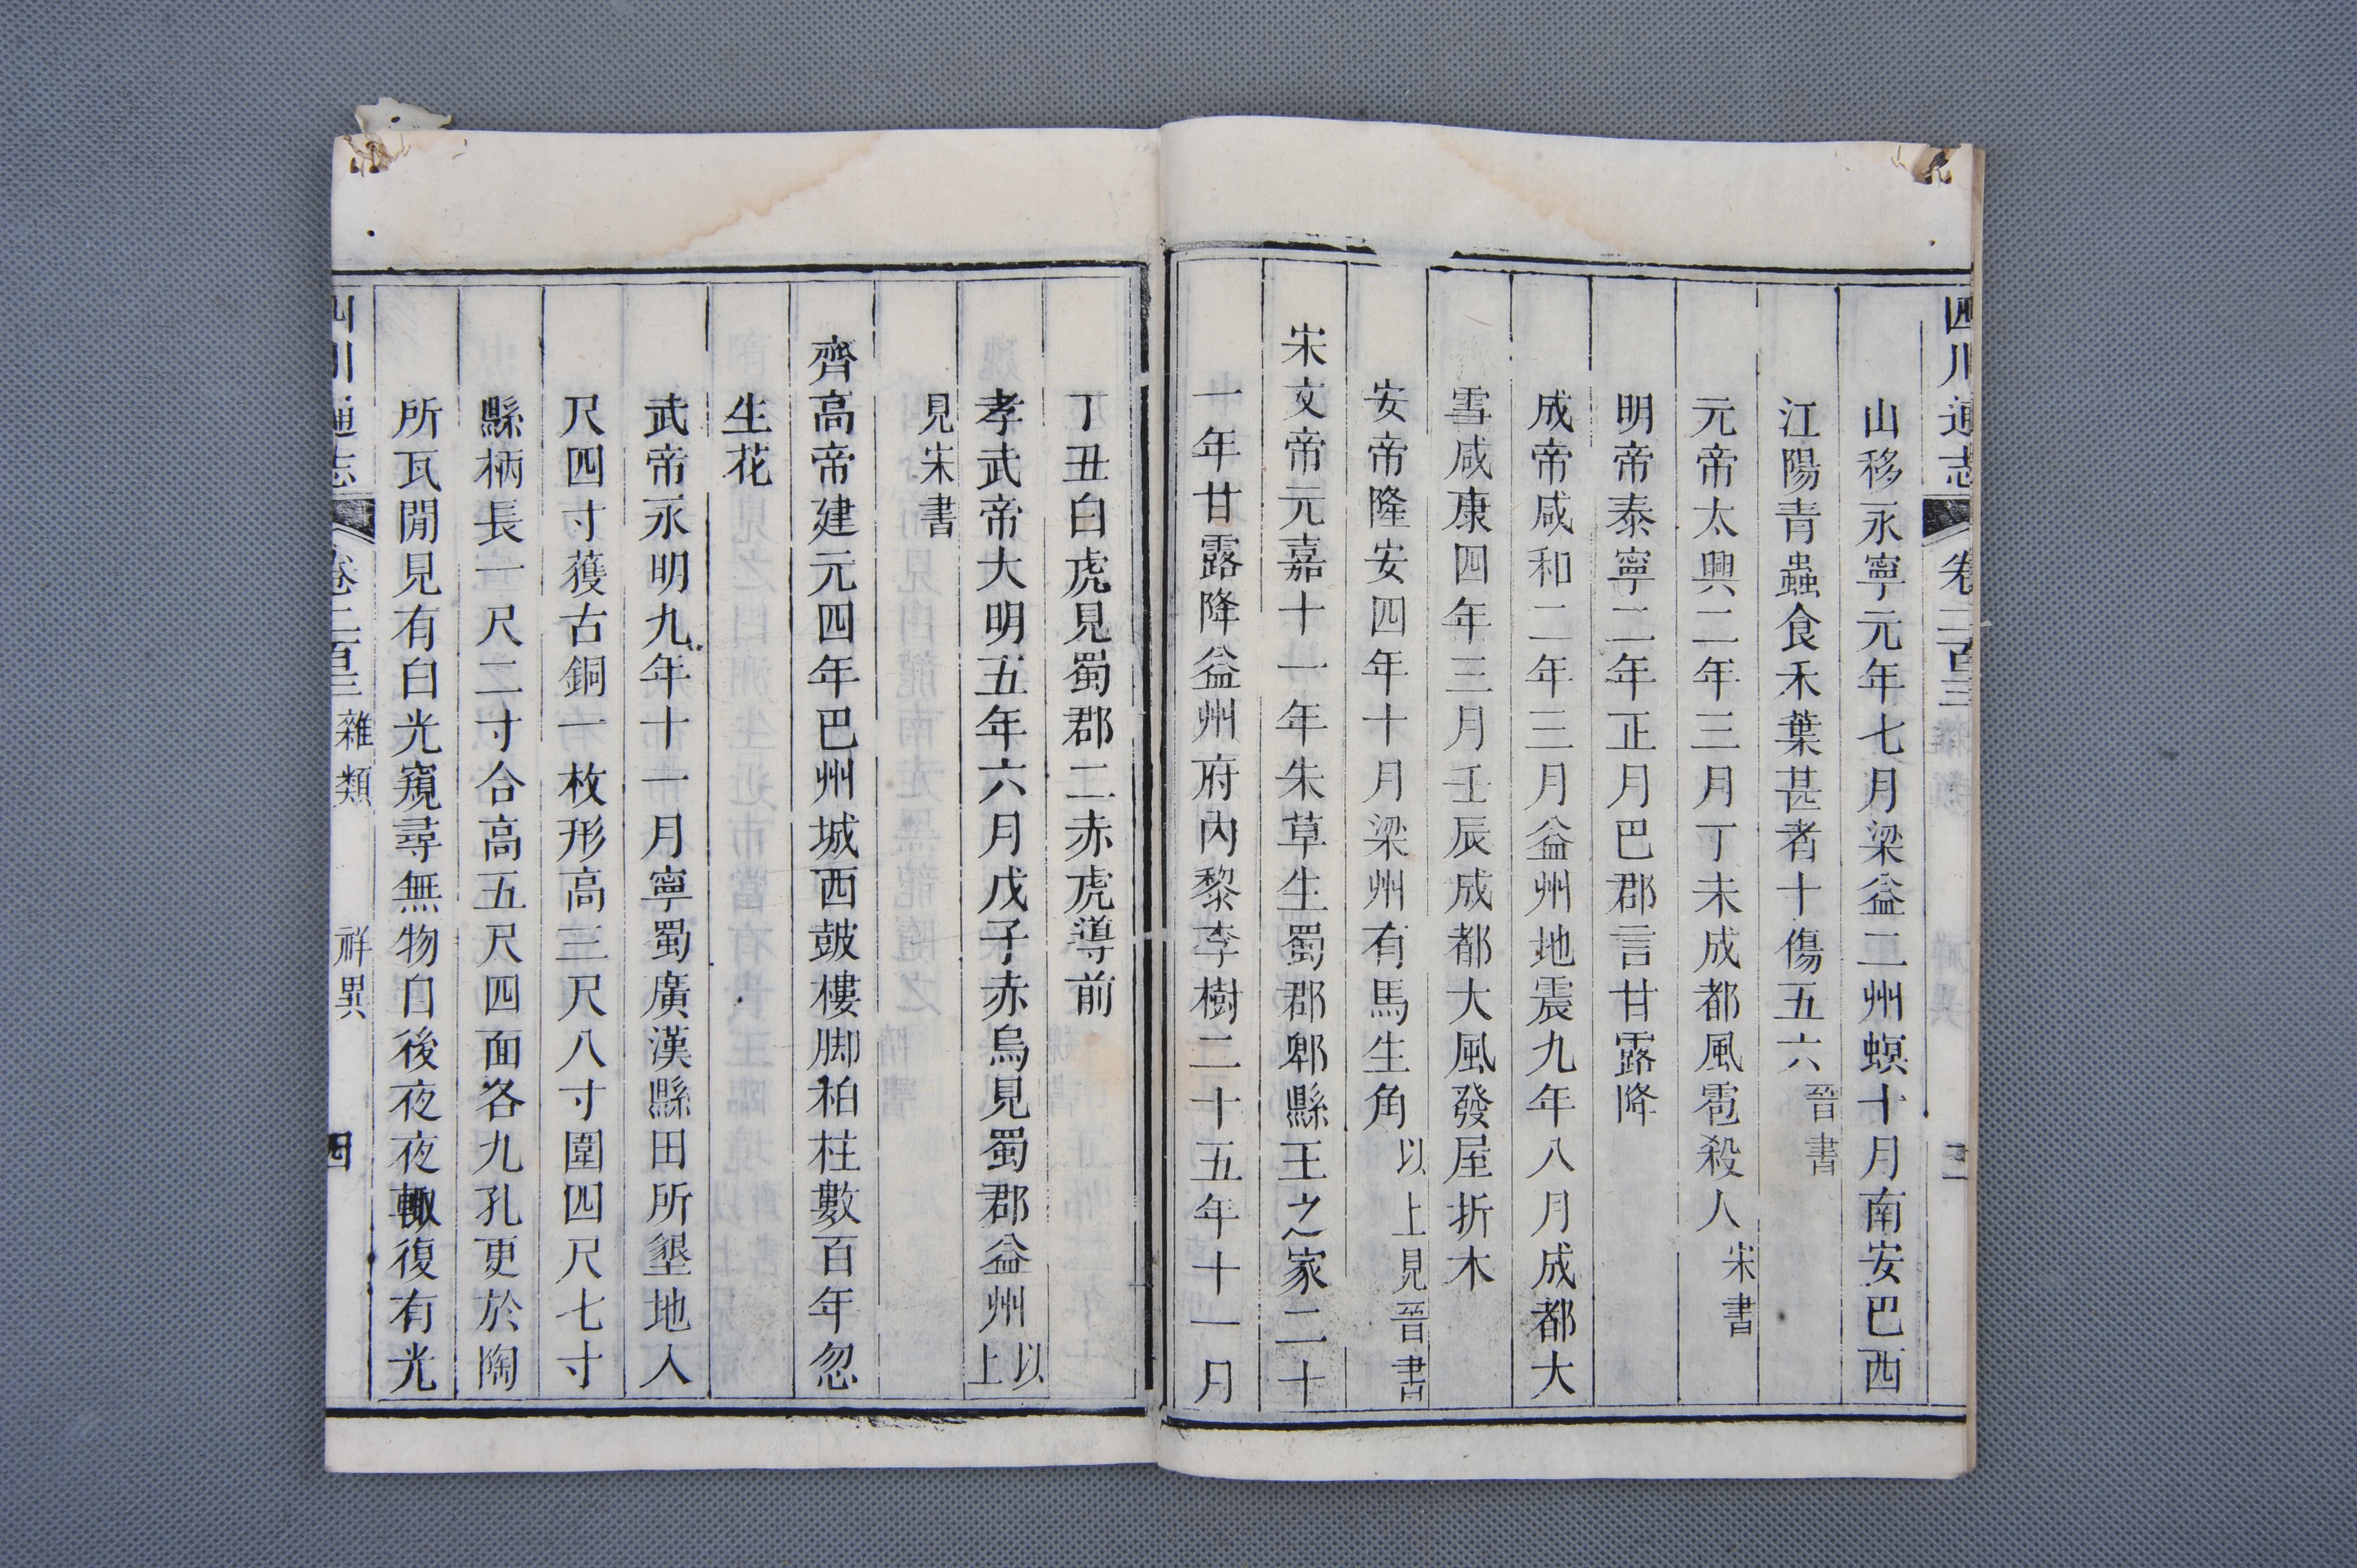 四川通志 卷二百三
山移永寧元年七月梁益二州螟十月南安巴西
江陽青蟲食禾葉甚者十傷五六晉書
元帝太興二年三月丁未成都風雹殺人宋書
明帝泰寧二年正月巴郡言甘露降
成帝咸和二年三月益州地震九年八月成都大
雪咸康四年三月壬辰成都大風發屋折木
安帝隆安四年十月梁州有馬生角以上見晉書
宋文帝元嘉十一年朱草生蜀郡郫縣王之家二十
一年甘露降益州府內黎李樹二十五年十一月
丁丑白虎見蜀郡二赤虎導前
孝武帝大明五年六月戊子赤烏見蜀郡益州以上
見宋書
齊高帝建元四年巴州城西皷樓脚柏柱數百年忽
生花
武帝永明九年十一月寧蜀廣漢縣田所墾地入
尺四寸獲古銅一枚形高三尺八寸圍四尺七寸
縣柄長一尺二寸合高五尺四面各九孔更於陶
所瓦閒見有白光窺尋無物自後夜夜輙復有光
四川通志 卷二百三 雜類 祥異 四